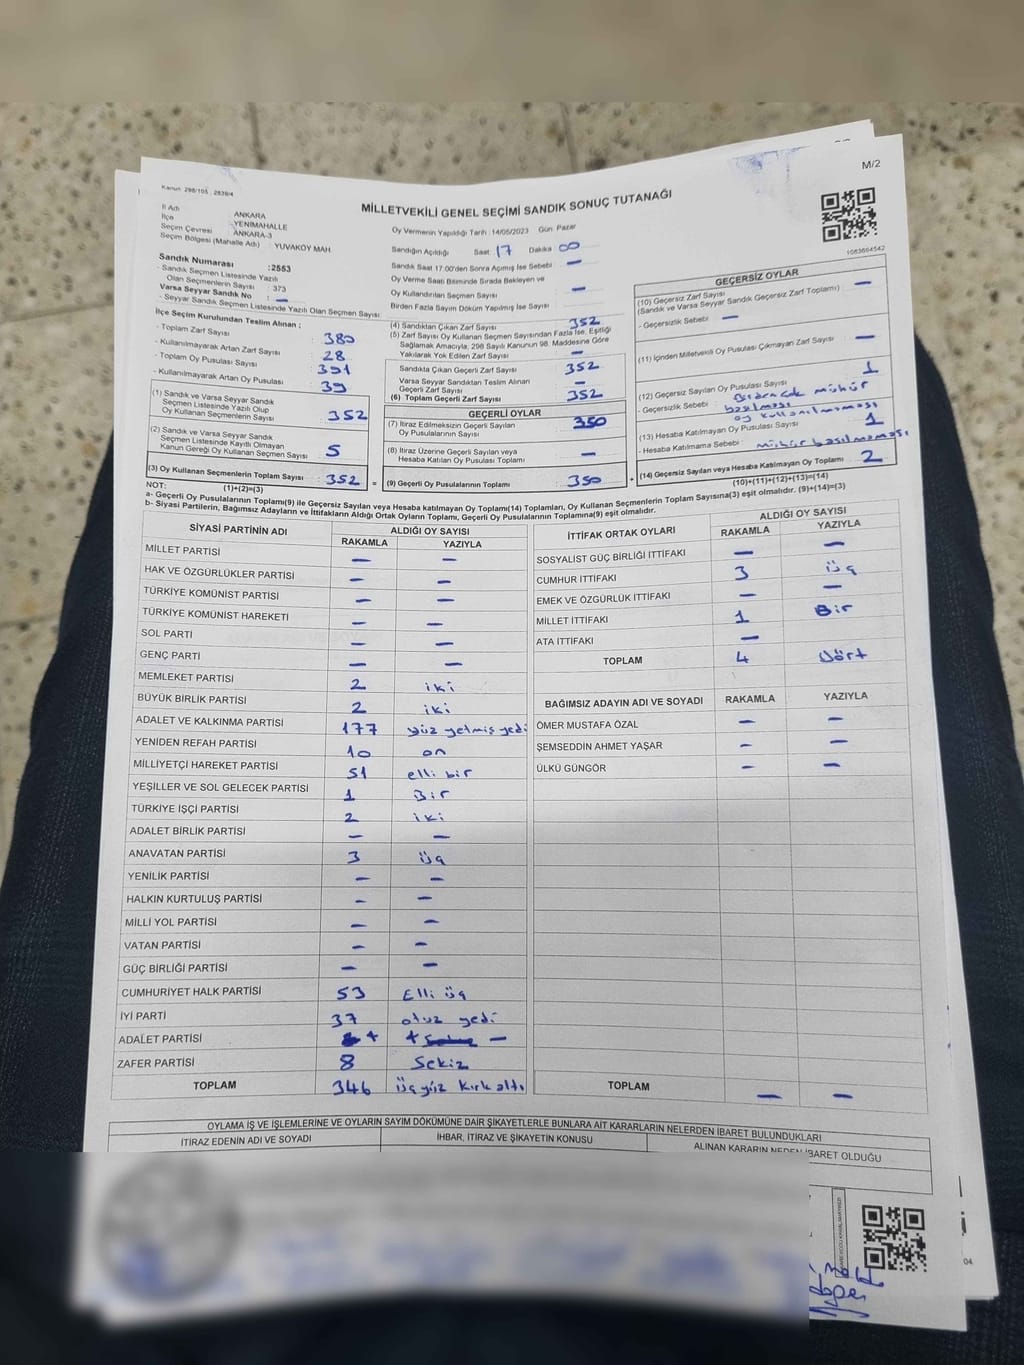 M/2
Kanun: 298/105 : 2839/4
MİLLETVEKİLİ GENEL SEÇİMİ SANDIK SONUÇ TUTANAĞI
İl Adı : ANKARA
İlçe YENİMAHALLE
Seçim Çevresi : ANKARA-3
Seçim Bölgesi (Mahalle Adı) : YUVAKÖY MAH.
Sandık Numarası :2553
- Sandık Seçmen Listesinde Yazılı
Olan Seçmenlerin Sayısı : 373
Varsa Seyyar Sandık No : —
- Seyyar Sandık Seçmen Listesinde Yazılı Olan Seçmen Sayısı:
İlçe Seçim Kurulundan Teslim Alınan ;
- Toplam Zarf Sayısı 380
- Kullanılmayarak Artan Zarf Sayısı 28
- Toplam Oy Pusulası Sayısı 391
- Kullanılmayarak Artan Oy Pusulası 39
(1) Sandık ve Varsa Seyyar Sandık
Seçmen Listesinde Yazılı Olup
Oy Kullanan Seçmenlerin Sayısı 352
(2) Sandık ve Varsa Seyyar Sandık
Seçmen Listesinde Kayıtlı Olmayan
Kanun Gereği Oy Kullanan Seçmen Sayısı 5
(3) Oy Kullanan Seçmenlerin Toplam Sayısı 352 =
(1)+(2)=(3)
Oy Vermenin Yapıldığı Tarih : 14/05/2023 Gün Pazar
Sandığın Açıldığı Saat 17 Dakika 00
Sandık Saat 17:00'den Sonra Açımış İse Sebebi : —
Oy Verme Saati Bitiminde Sırada Bekleyen ve
Oy Kullandırılan Seçmen Sayısı —
Birden Fazla Sayım Döküm Yapılmış İse Sayısı :
(4) Sandıktan Çıkan Zarf Sayısı 352
(5) Zarf Sayısı Oy Kullanan Seçmen Sayısından Fazla İse, Eşitliği
Sağlamak Amacıyla, 298 Sayılı Kanunun 98. Maddesine Göre
Yakılarak Yok Edilen Zarf Sayısı —
Sandıkta Çıkan Geçerli Zarf Sayısı 352
Varsa Seyyar Sandıktan Teslim Alınan
Geçerli Zarf Sayısı —
(6) Toplam Geçerli Zarf Sayısı 352
GEÇERLİ OYLAR
(7) İtiraz Edilmeksizin Geçerli Sayılan
Oy Pusulalarının Sayısı 350
(8) İtiraz Üzerine Geçerli Sayılan veya
Hesaba Katılan Oy Pusulası Toplamı —
(9) Geçerli Oy Pusulalarının Toplamı 350 +
1083604542
GEÇERSİZ OYLAR
(10) Geçersiz Zarf Sayısı —
(Sandık ve Varsa Seyyar Sandık Geçersiz Zarf Toplamı) :
- Geçersizlik Sebebi : —
(11) İçinden Milletvekili Oy Pusulası Çıkmayan Zarf Sayısı —
(12) Geçersiz Sayılan Oy Pusulası Sayısı 1
- Geçersizlik Sebebi : Birden çok mühür
basılması
oy kullanılmaması
(13) Hesaba Katılmayan Oy Pusulası Sayısı 1
- Hesaba Katılmama Sebebi : mühür basılmaması
(14) Geçersiz Sayılan veya Hesaba Katılmayan Oy Toplamı 2
(10)+(11)+(12)+(13)=(14)
NOT:
a- Geçerli Oy Pusulalarının Toplamı(9) ile Geçersiz Sayılan veya Hesaba katılmayan Oy Toplamı(14) Toplamları, Oy Kullanan Seçmenlerin Toplam Sayısına(3) eşit olmalıdır. (9)+(14)=(3)
b- Siyasi Partilerin, Bağımsız Adayların ve İttifakların Aldığı Ortak Oyların Toplamı, Geçerli Oy Pusulalarının Toplamına(9) eşit olmalıdır.
SİYASİ PARTİNİN ADI ALDIĞI OY SAYISI
RAKAMLA YAZIYLA
MİLLET PARTİSİ — —
HAK VE ÖZGÜRLÜKLER PARTİSİ — —
TÜRKİYE KOMÜNİST PARTİSİ — —
TÜRKİYE KOMÜNİST HAREKETİ — —
SOL PARTİ — —
GENÇ PARTİ — —
MEMLEKET PARTİSİ 2 iki
BÜYÜK BİRLİK PARTİSİ 2 iki
ADALET VE KALKINMA PARTİSİ 177 yüz yetmiş yedi
YENİDEN REFAH PARTİSİ 10 on
MİLLİYETÇİ HAREKET PARTİSİ 51 elli bir
YEŞİLLER VE SOL GELECEK PARTİSİ 1 Bir
TÜRKİYE İŞÇİ PARTİSİ 2 iki
ADALET BİRLİK PARTİSİ — —
ANAVATAN PARTİSİ 3 üç
YENİLİK PARTİSİ — —
HALKIN KURTULUŞ PARTİSİ - —
MİLLİ YOL PARTİSİ — —
VATAN PARTİSİ — —
GÜÇ BİRLİĞİ PARTİSİ — —
CUMHURİYET HALK PARTİSİ 53 Elli üç
İYİ PARTİ 37 otuz yedi
ADALET PARTİSİ —
ZAFER PARTİSİ 8 Sekiz
TOPLAM 346 üçyüz kırk altı
İTTİFAK ORTAK OYLARI ALDIĞI OY SAYISI
RAKAMLA YAZIYLA
SOSYALİST GÜÇ BİRLİĞİ İTTİFAKI — —
CUMHUR İTTİFAKI 3 üç
EMEK VE ÖZGÜRLÜK İTTİFAKI — —
MİLLET İTTİFAKI 1 Bir
ATA İTTİFAKI —
TOPLAM 4 Dört
BAĞIMSIZ ADAYIN ADI VE SOYADI RAKAMLA YAZIYLA
ÖMER MUSTAFA ÖZAL — —
ŞEMSEDDİN AHMET YAŞAR - —
ÜLKÜ GÜNGÖR — —
TOPLAM — —
OYLAMA İŞ VE İŞLEMLERİNE VE OYLARIN SAYIM DÖKÜMÜNE DAİR ŞİKAYETLERLE BUNLARA AİT KARARLARIN NELERDEN İBARET BULUNDUKLARI
İTİRAZ EDENİN ADI VE SOYADI İHBAR, İTİRAZ VE ŞİKAYETİN KONUSU ALINAN KARARIN NEDEN İBARET OLDUĞU
04